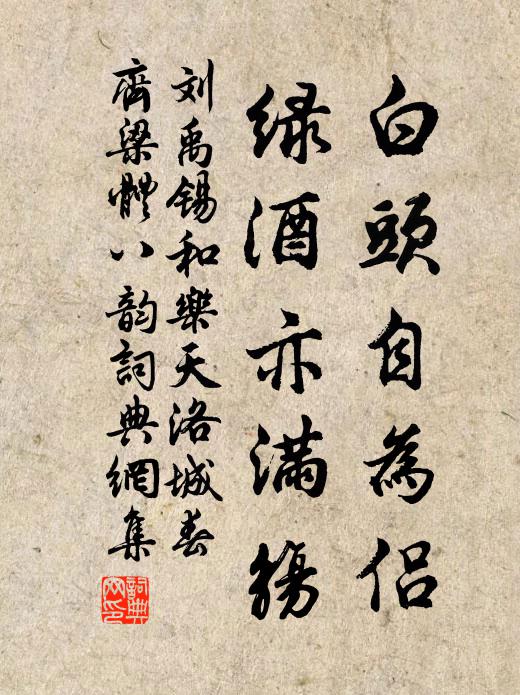 白頭自為侶
緑酒亦滿觴
刘禹锡和樂天洛城春
齊梁體八韵詞典網集
詞典
网印